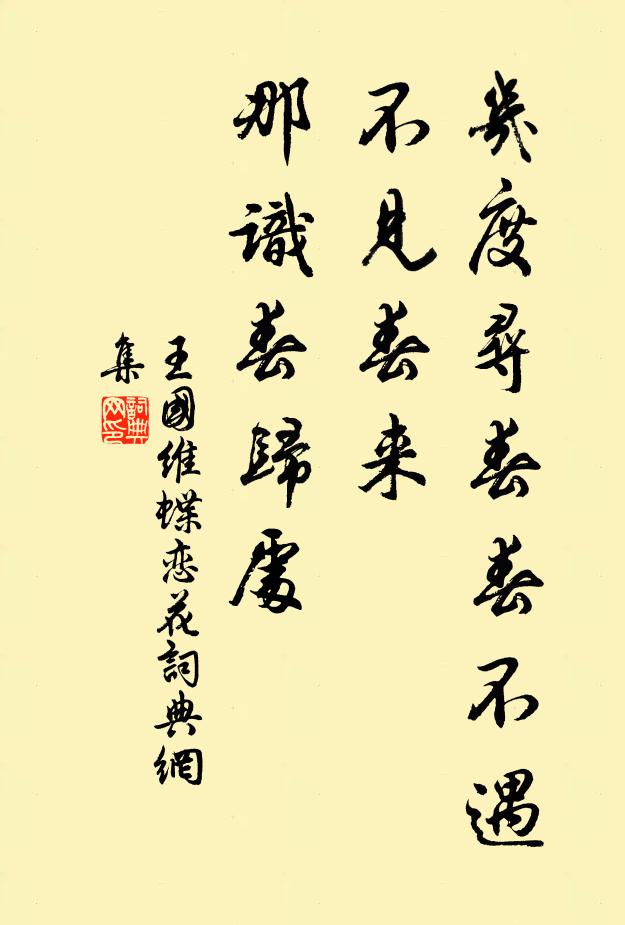 幾度尋春春不遇
不見春来
那識春歸處
王國維蝶恋花詞典網
集
詞典網印